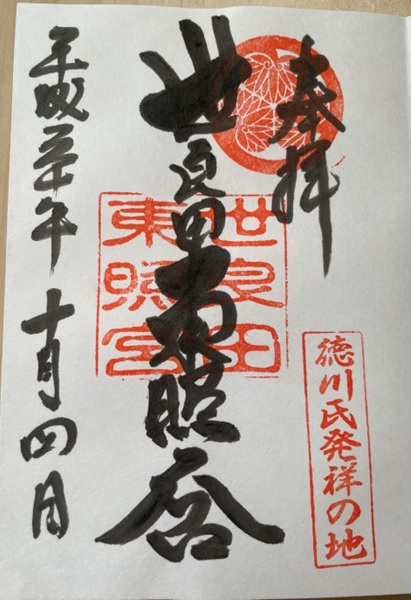 奉拝
世良田東照宮
世良田
東照宮
徳川氏発祥の地
平成三十年十月四日